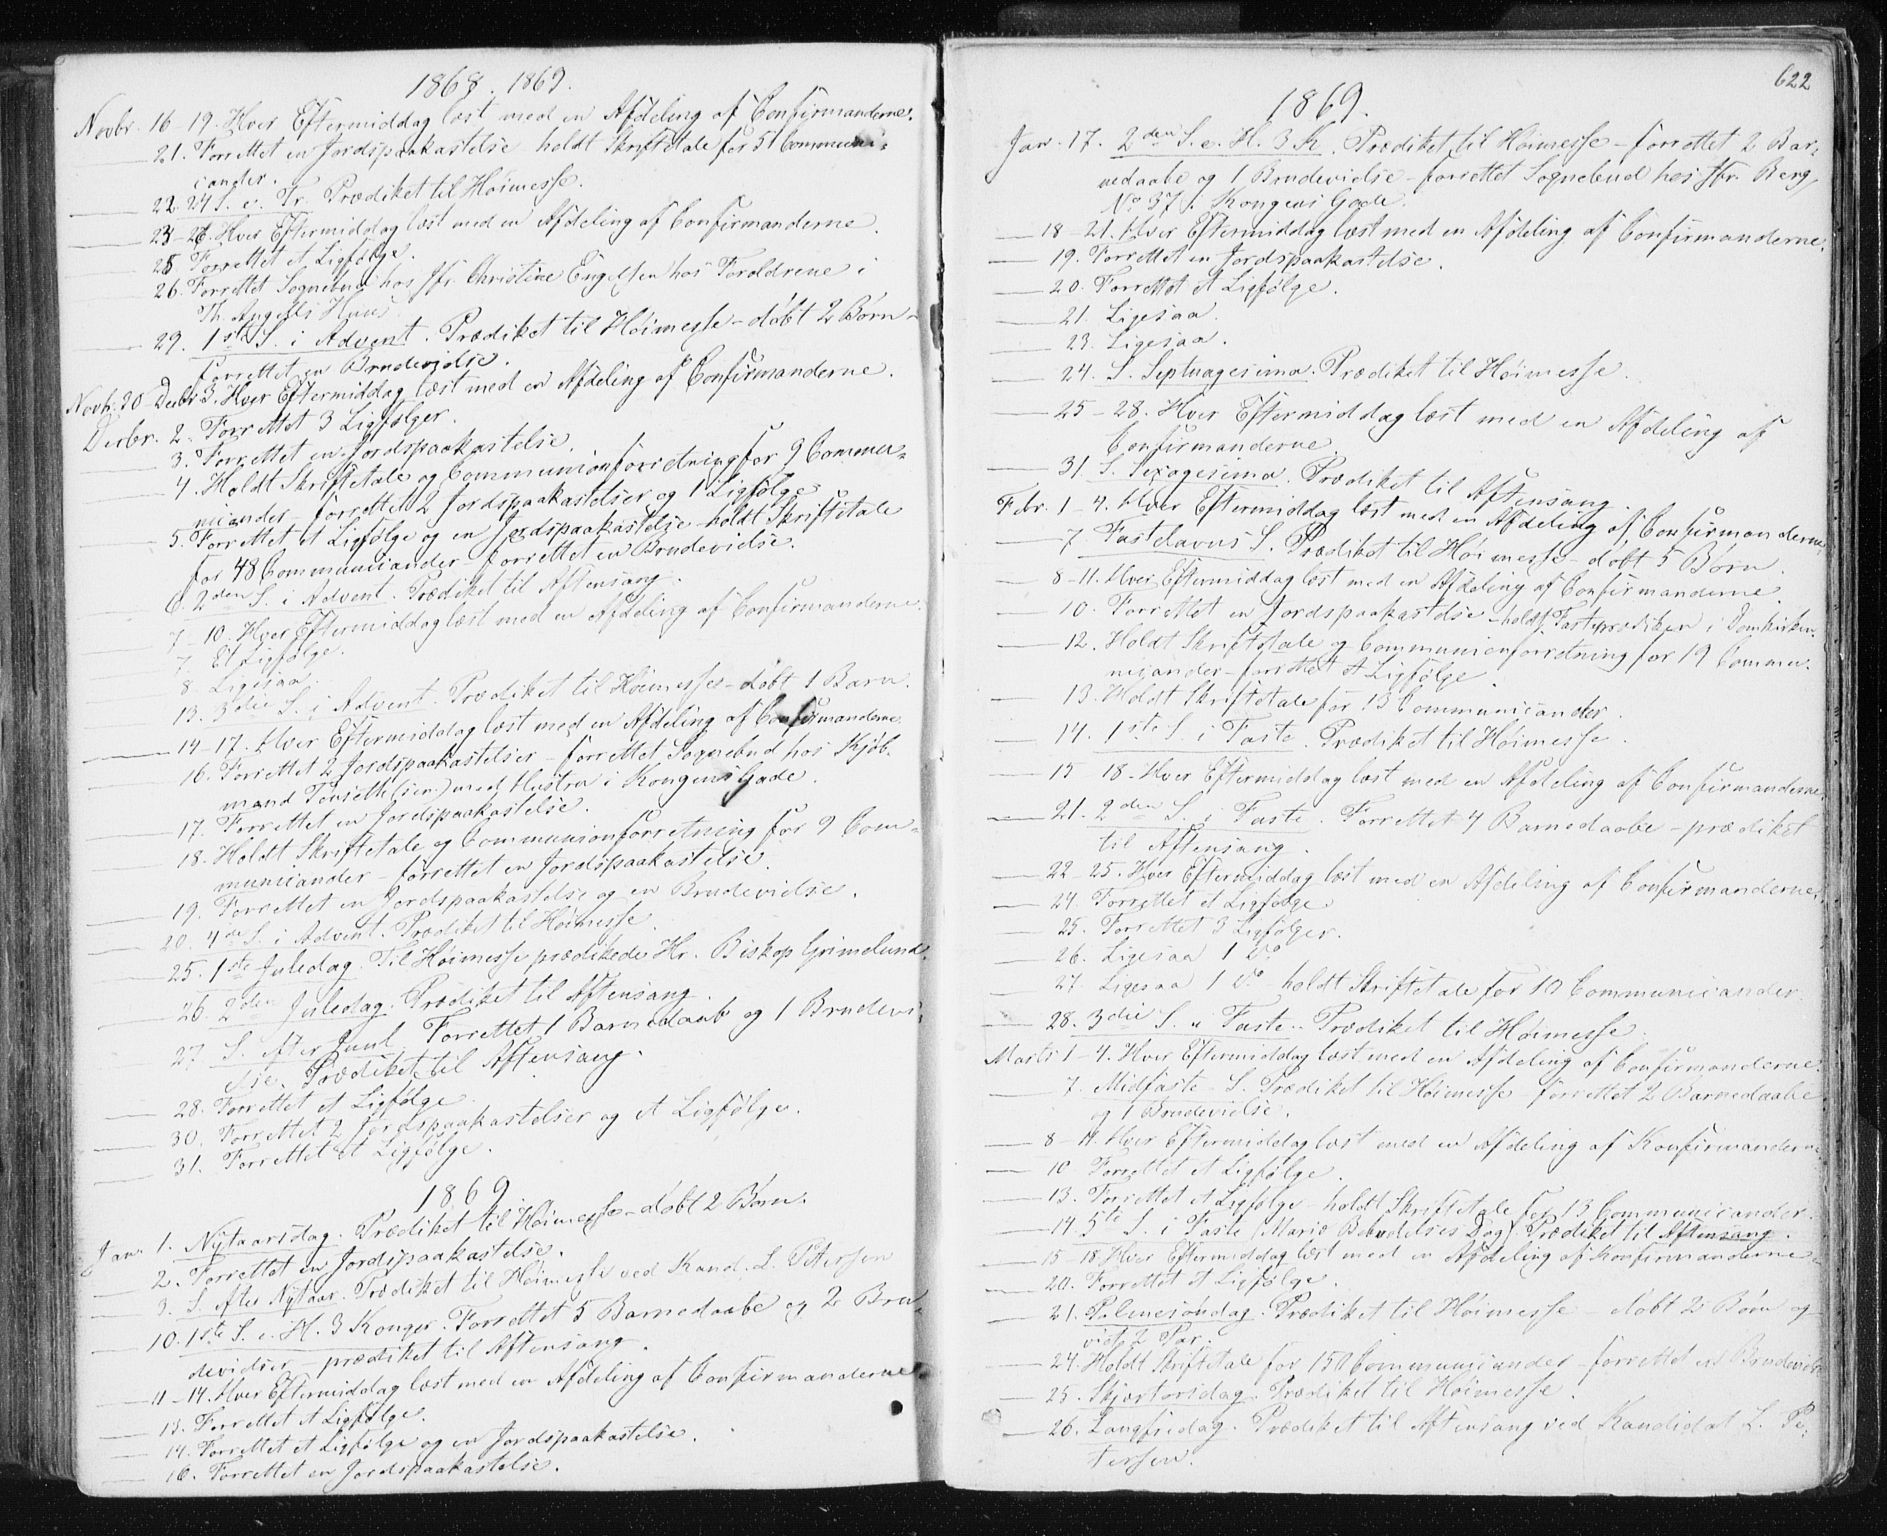 1868. 1869.
Novbr. 16-19. Hver Eftermiddag læst med en Afdeling af Confirmanderne.
21. Forrettet en Jordspaakastelse holdt Skriftetale for 51 Communi-
cander.
22. 24 S. e. Tr. Prædiket til Høimesse.
23-26. Hver Eftermiddag læst med en Afdeling af Confirmanderne.
25 Forrettet et Ligfølge.
26. Forrettet Sognebud hos Jfr. Christine Engelsen hos Forældrene i
Th. Angells Huus.
29. 1ste S. i Advent. Prædiket til Høimesse - døbt 2 Børn -
forrettet en Brudevielse.
Novbr. 30-Decbr 3. Hver Eftermiddag læst med en Afdeling af Confirmanderne.
Decbr. 2. Forrettet 3 Ligfølger.
3. Forrettet en Jordspaakastelse.
4. Holdt Skriftetale og Communionforretning for 9 Commu-
nicander - forrettet 2 Jordspaakastelser og 1 Ligfølge.
5. Forrettet et Ligfølge og en Jordspaakastelse - holdt Skriftetale
for 48 Communicander - forrettet en Brudevielse.
6. 2den S. i Advent. Prædiket til Aftensang.
7-10. Hver Eftermiddag læst med en Afdeling af Confirmanderne.
7. Et Ligfølge.
8 Ligesaa.
13. 3die S. i Advent. Prædiket til Høimesse - døbt 1 Barn.
14-17. Hver Eftermiddag læst med en Afdeling af Confirmanderne.
16. Forrettet 2 Jordspaakastelser - forrettet Sognebud hos Kjøb-
mand (sen.) med Hustru i Kongens Gade.
17. Forrettet en Jordspaakastelse.
18. Holdt Skriftetale og Communionforretning for 9 Com-
municander - forrettet en Jordspaakastelse.
19. Forrettet en Jordspaakastelse og en Brudevielse.
20. 4de S. i Advent. Prædiket til Høimesse.
25. 1ste Juledag. Til Høimesse prædikede Hr. Biskop Grimelund.
26. 2den Juledag. Prædiket til Aftensang.
27. S. efter Juul. Forrettet 1 Barnedaab og 1 Brudevi-
else. Prædiket til Aftensang.
28. Forrettet et Ligfølge.
30. Forrettet 2 Jordspaakastelser og et Ligfølge.
31. Forrettet et Ligfølge.
1869
Jan. 1. Nytaarsdag. Prædiket til Høimesse - døbt 2 Børn.
2. Forrettet en Jordspaakastelse.
3. S. efter Nytaar. Prædiket til Høimesse ved Kand. L. Petersen
10. 1ste S. e. H. 3 Konger. Forrettet 5 Barnedaabe og 2 Bru-
devielser - prædiket til Aftensang.
11-14. Hver Eftermiddag læst med en Afdeling af Confirmanderne
13. Forrettet et Ligfølge.
14. Forrettet et Ligfølge og en Jordspaakastelse.
16. Forrettet en Jordspaakastelse.
622
1869.
Jan. 17. 2den S. e. H. 3 K. Prædiket til Høimesse - forrettet 2 Bar-
nedaabe og 1 Brudevielse - forrettet Sognebud hos Jfr. Berg,
No 37 i Kongens Gade.
18-21. Hver Eftermiddag læst med en Afdeling af Confirmanderne.
19. Forrettet en Jordspaakastelse.
20. Forrettet et Ligfølge.
21. Ligesaa.
23. Ligesaa.
24. S. Septuagesima. Prædiket til Høimesse.
25-28. Hver Eftermiddag læst med en Afdeling af
Confirmanderne.
31. S. Sexagesima. Prædiket til Aftensang.
Febr. 1-4. Hver Eftermiddag læst med en Afdeling af Confirmanderne
7 Fastelavns S. Prædiket til Høimesse - døbt 5 Børn.
8-11. Hver Eftermiddag læst med en Afdeling af Confirmanderne.
10. Forrettet en Jordspaakastelse - holdt Fasteprædiken i Domkirken.
12. Holdt Skriftetale og Communionforretning for 19 Commu-
nicander - forrettet et Ligfølge.
13. Holdt Skriftetale for 13 Communicander.
14. 1ste S. i Faste. Prædiket til Høimesse.
15 18. Hver Eftermiddag læst med en Afdeling af Confirmanderne.
21. 2den S. i Faste. Forrettet 4 Barnedaabe - prædiket
til Aftensang.
22 25. Hver Eftermiddag læst med en Afdeling af Confirmanderne.
24. Forrettet et Ligfølge.
25. Forrettet 3 Ligfølger.
26. Ligesaa 1 do
27. Ligesaa 1 do holdt Skriftetale for 10 Communicander.
28. 3die S. i Faste. Prædiket til Høimesse.
Marts 1-4. Hver Eftermiddag læst med en Afdeling af Confirmanderne.
7. Midfaste S. Prædiket til Høimesse forrettet 2 Barnedaabe
og 1 Brudevielse.
8-11. Hver Eftermiddag læst med en Afdeling af Konfirmanderne
10 Forrettet et Ligfølge.
13. Forrettet et Ligfølge - holdt Skriftetale for 13 Communicander.
14. 5te S. i Faste (Mariæ Bebudelses Dag). Prædiket til Aftensang.
15 18 Hver Eftermiddag læst med en Afdeling af Konfirmanderne.
20. Forrettet et Ligfølge.
21. Palmesøndag. Prædiket til Høimesse - døbt 2 Børn og
viet 2 Par.
24. Holdt Skriftetale for 150 Communicander - forrettet en Brudevielse
25. Skjærtorsdag. Prædiket til Høimesse.
26. Langfredag. Prædiket til Aftensang ved Kandidat L. Pe-
tersen.